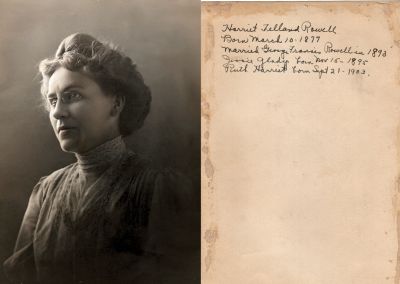 Harriet Telland Powell
Born March 10-1877
Married George Francis Powell in 1893
Jessie Gladys born Nov 15- 1895
Ruth Harriet born Sept 21- 1903.